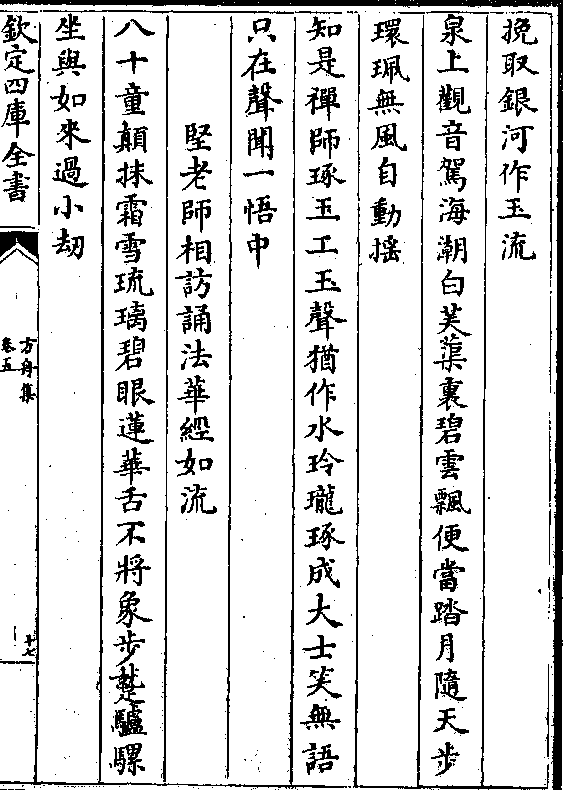 挽取銀河作玉流
泉上觀音駕海潮白芙蕖裏碧雲飄便當踏月隨天步
環珮無風自動揺
知是禪師琢玉工玉聲猶作水玲瓏琢成大士笑無語
只在聲聞一悟中
堅老師相訪誦法華經如流
八十童顛抹霜雪琉璃碧眼蓮華舌不將象步蹵驢騾
坐與如來過小刼
欽定四庫全書
方舟集
卷五
十七